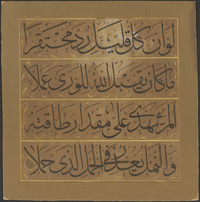 لوان كل قليل رد محتقرا
ما كان يقبل الله للورى عملا
المرء يهدى على مقدار طاقته
والنمل يعذر فى الحمل الذى حملا